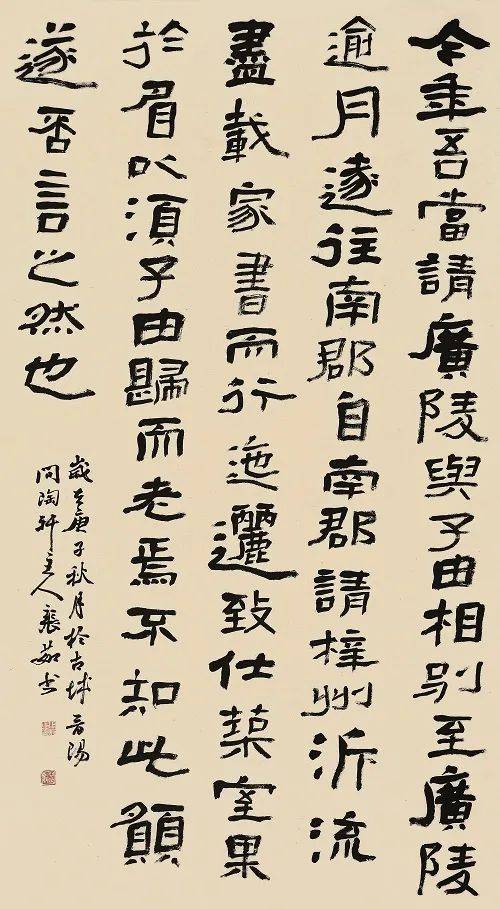 今年吾當請廣陵與子由相別至廣陵
逾月遂往南郡自南郡請梓州泝流
盡載家書而行迤邐致仕築室果
於眉以須子由歸而老焉不知此願
遂否言之然也
歲在庚子秋月於古城晉陽
問陶軒主人茹書